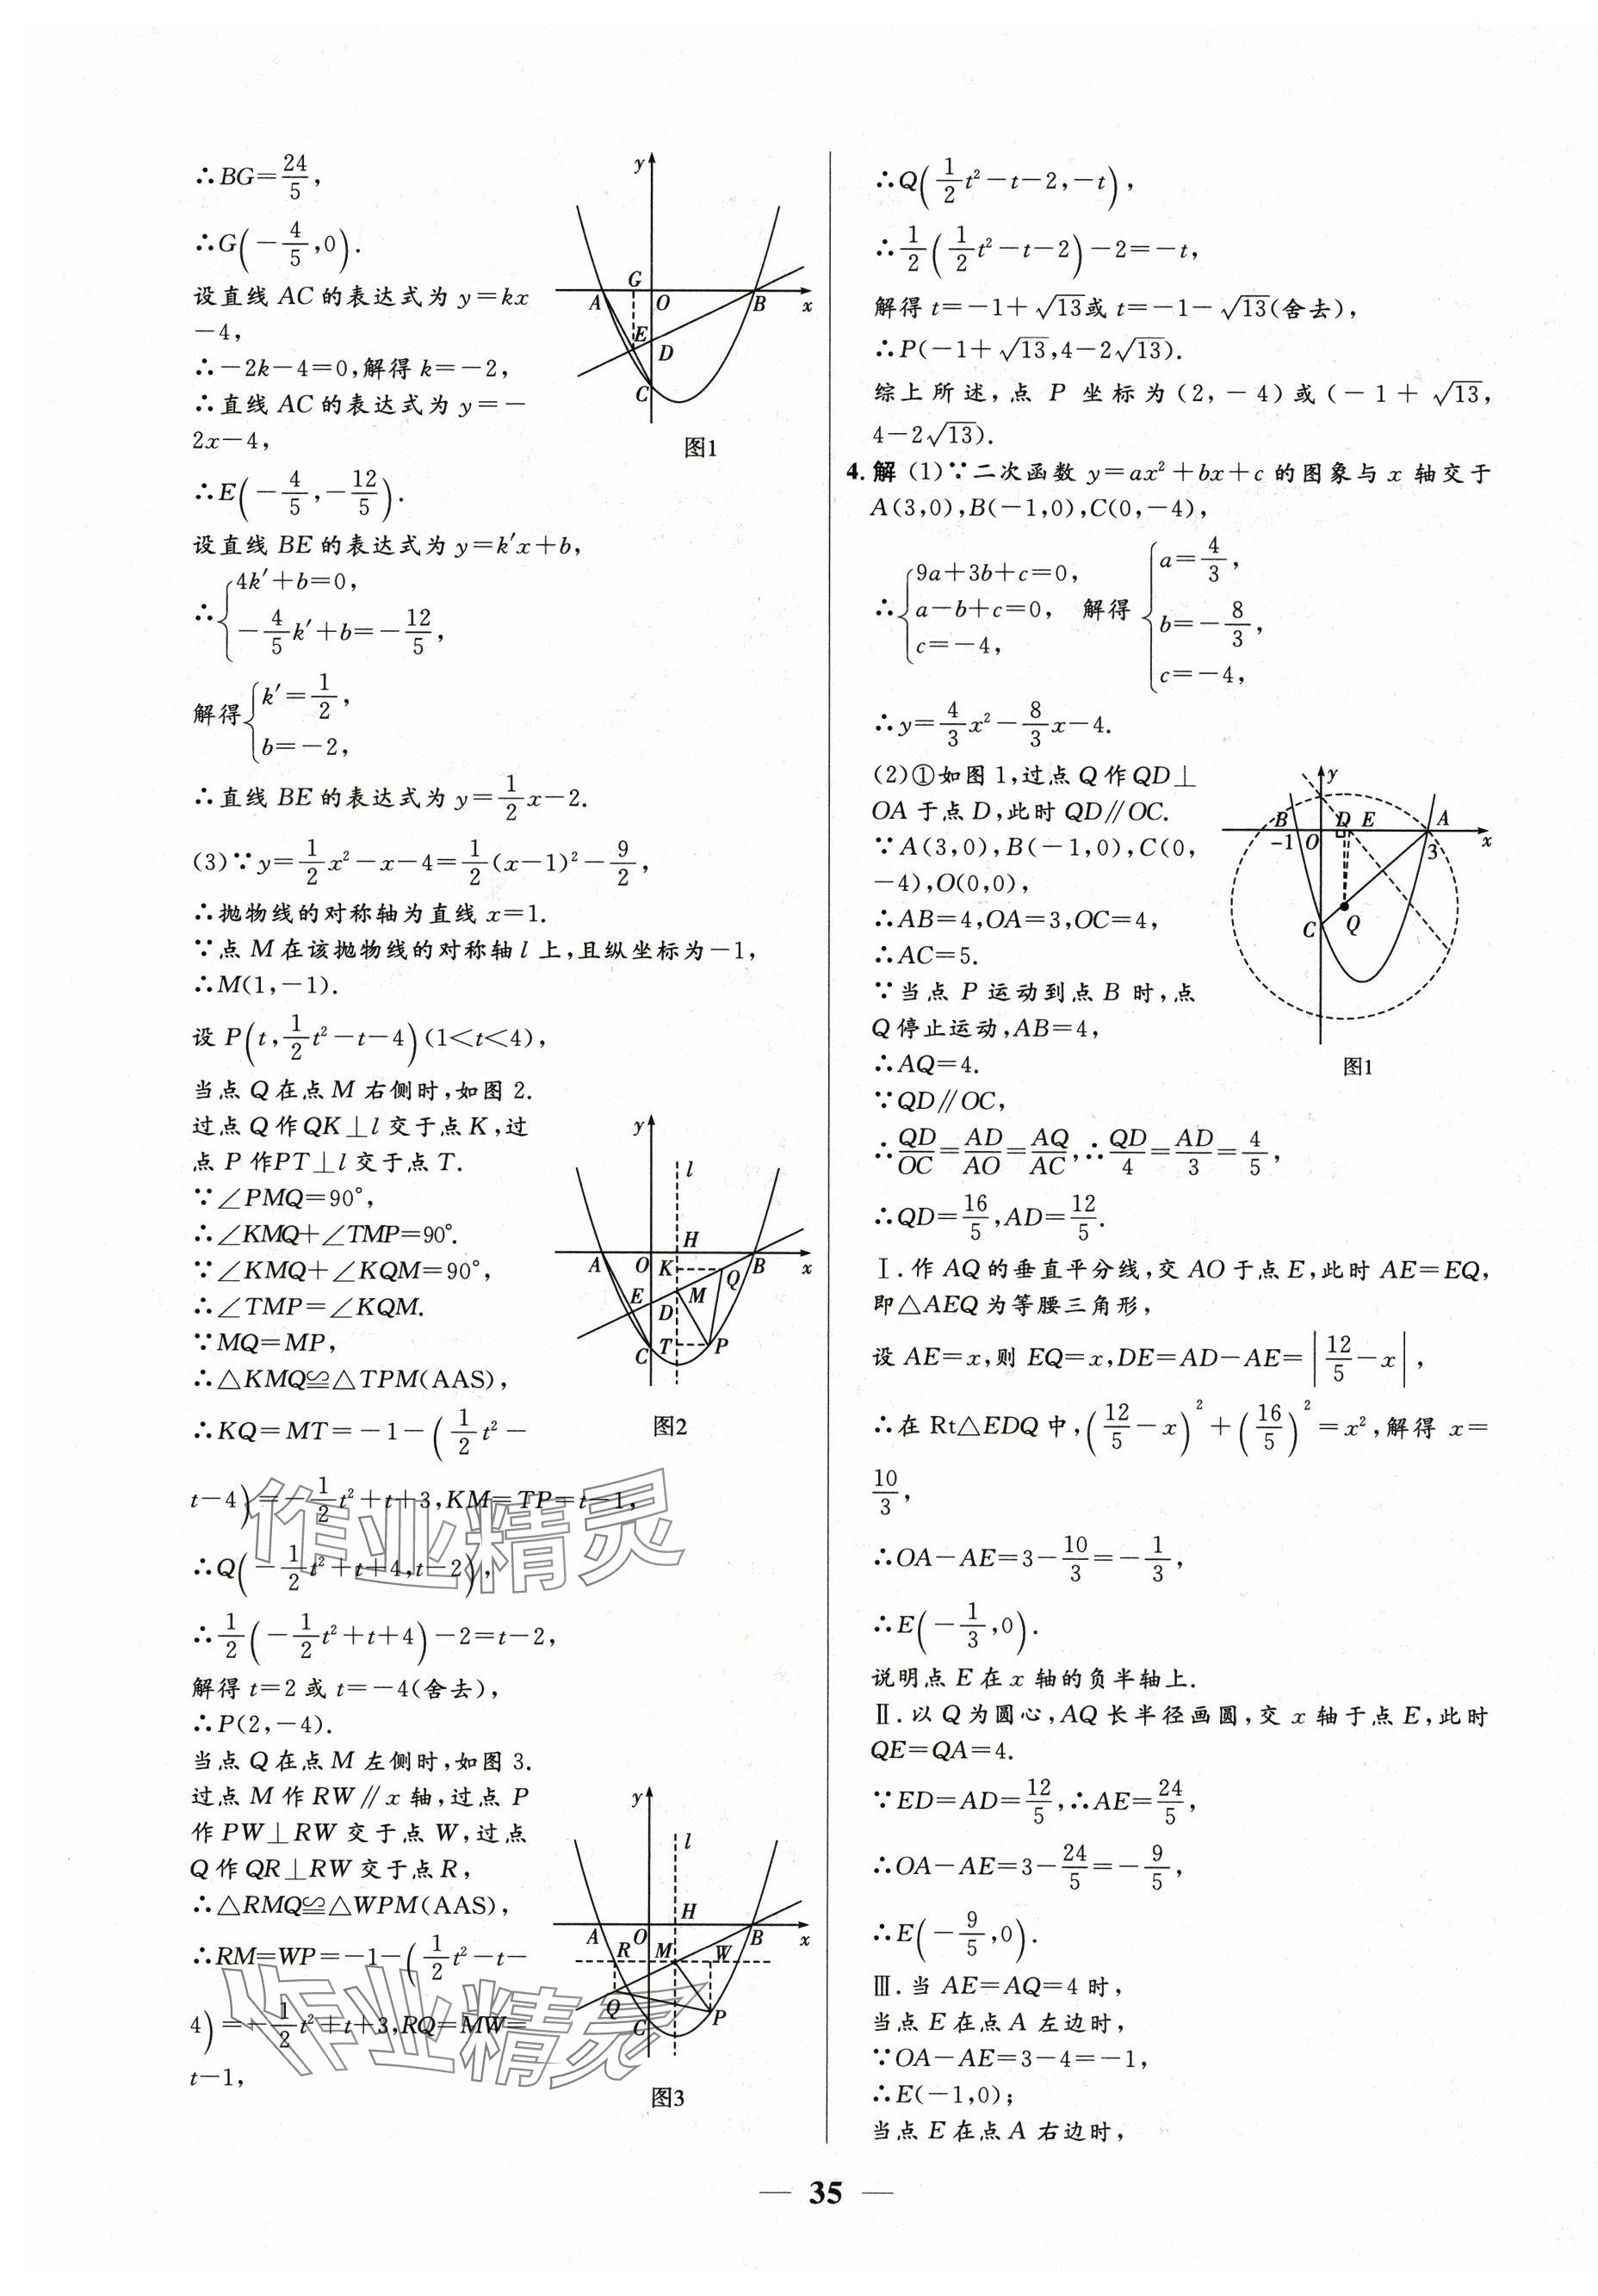 ∴BG=24/5,
∴G(-4/5,0).
设直线 AC 的表达式为 y=kx
-4,
∴-2k-4=0,解得 k=-2,
∴直线 AC 的表达式为 y=-
2x-4,
∴E(-4/5,-12/5).
设直线 BE 的表达式为 y=k′x+b,
∴{4k′+b=0,
-4/5k′+b=-12/5,
解得{k′=1/2,
b=-2,
∴直线 BE 的表达式为 y=1/2x-2.
(3)∵y=1/2x²-x-4=1/2(x-1)²-9/2,
∴抛物线的对称轴为直线 x=1.
∵点 M 在该抛物线的对称轴 l 上,且纵坐标为-1,
∴M(1,-1).
设 P(t,1/2t²-t-4)(1<t<4),
当点 Q 在点 M 右侧时,如图 2.
过点 Q 作 QK⊥l 交于点 K,过
点 P 作PT⊥l 交于点 T.
∵∠PMQ=90°,
∴∠KMQ+∠TMP=90°.
∵∠KMQ+∠KQM=90°,
∴∠TMP=∠KQM.
∵MQ=MP,
∴△KMQ≌△TPM(AAS),
∴KQ=MT=-1-(1/2t²-
t-4)=-1/2t²+t+3,KM=TP=t-1,
∴Q(-1/2t²+t+4,t-2),
∴1/2(-1/2t²+t+4)-2=t-2,
解得 t=2 或 t=-4(舍去),
∴P(2,-4).
当点 Q 在点 M 左侧时,如图 3.
过点 M 作 RW∥x 轴,过点 P
作 PW⊥RW 交于点 W,过点
Q 作 QR⊥RW 交于点 R,
∴△RMQ≌△WPM(AAS),
∴RM=WP=-1-(1/2t²-t-
4)=-1/2t²+t+3,RQ=MW=
t-1,
y
G
A
O
B
x
E
D
C
图1
y
l
H
A
O
K
B
x
Q
E
D
M
C
T
P
图2
y
l
H
A
O
B
x
R
M
W
Q
C
P
图3
作业精灵
作业精灵
∴Q(1/2t²-t-2,-t),
∴1/2(1/2t²-t-2)-2=-t,
解得 t=-1+√13或 t=-1-√13(舍去),
∴P(-1+√13,4-2√13).
综上所述,点 P 坐标为(2,-4)或(-1+√13,
4-2√13).
4.解 (1)∵二次函数 y=ax²+bx+c 的图象与 x 轴交于
A(3,0),B(-1,0),C(0,-4),
∴{9a+3b+c=0,
a-b+c=0,
c=-4,
解得{a=4/3,
b=-8/3,
c=-4,
∴y=4/3x²-8/3x-4.
(2)①如图 1,过点 Q 作 QD⊥
OA 于点 D,此时 QD∥OC.
∵A(3,0),B(-1,0),C(0,
-4),O(0,0),
∴AB=4,OA=3,OC=4,
∴AC=5.
∵当点 P 运动到点 B 时,点
Q 停止运动,AB=4,
∴AQ=4.
∵QD∥OC,
∴QD/OC=AD/AO=AQ/AC,∴QD/4=AD/3=4/5,
∴QD=16/5,AD=12/5.
Ⅰ.作 AQ 的垂直平分线,交 AO 于点 E,此时 AE=EQ,
即△AEQ 为等腰三角形,
设 AE=x,则 EQ=x,DE=AD-AE=|12/5-x|,
∴在 Rt△EDQ 中,(12/5-x)²+(16/5)²=x²,解得 x=
10/3,
∴OA-AE=3-10/3=-1/3,
∴E(-1/3,0).
说明点 E 在 x 轴的负半轴上.
Ⅱ.以 Q 为圆心,AQ 长半径画圆,交 x 轴于点 E,此时
QE=QA=4.
∵ED=AD=12/5,∴AE=24/5,
∴OA-AE=3-24/5=-9/5,
∴E(-9/5,0).
Ⅲ.当 AE=AQ=4 时,
当点 E 在点 A 左边时,
∵OA-AE=3-4=-1,
∴E(-1,0);
当点 E 在点 A 右边时,
y
B
D
E
A
-1
O
3
x
C
Q
图1
— 35 —